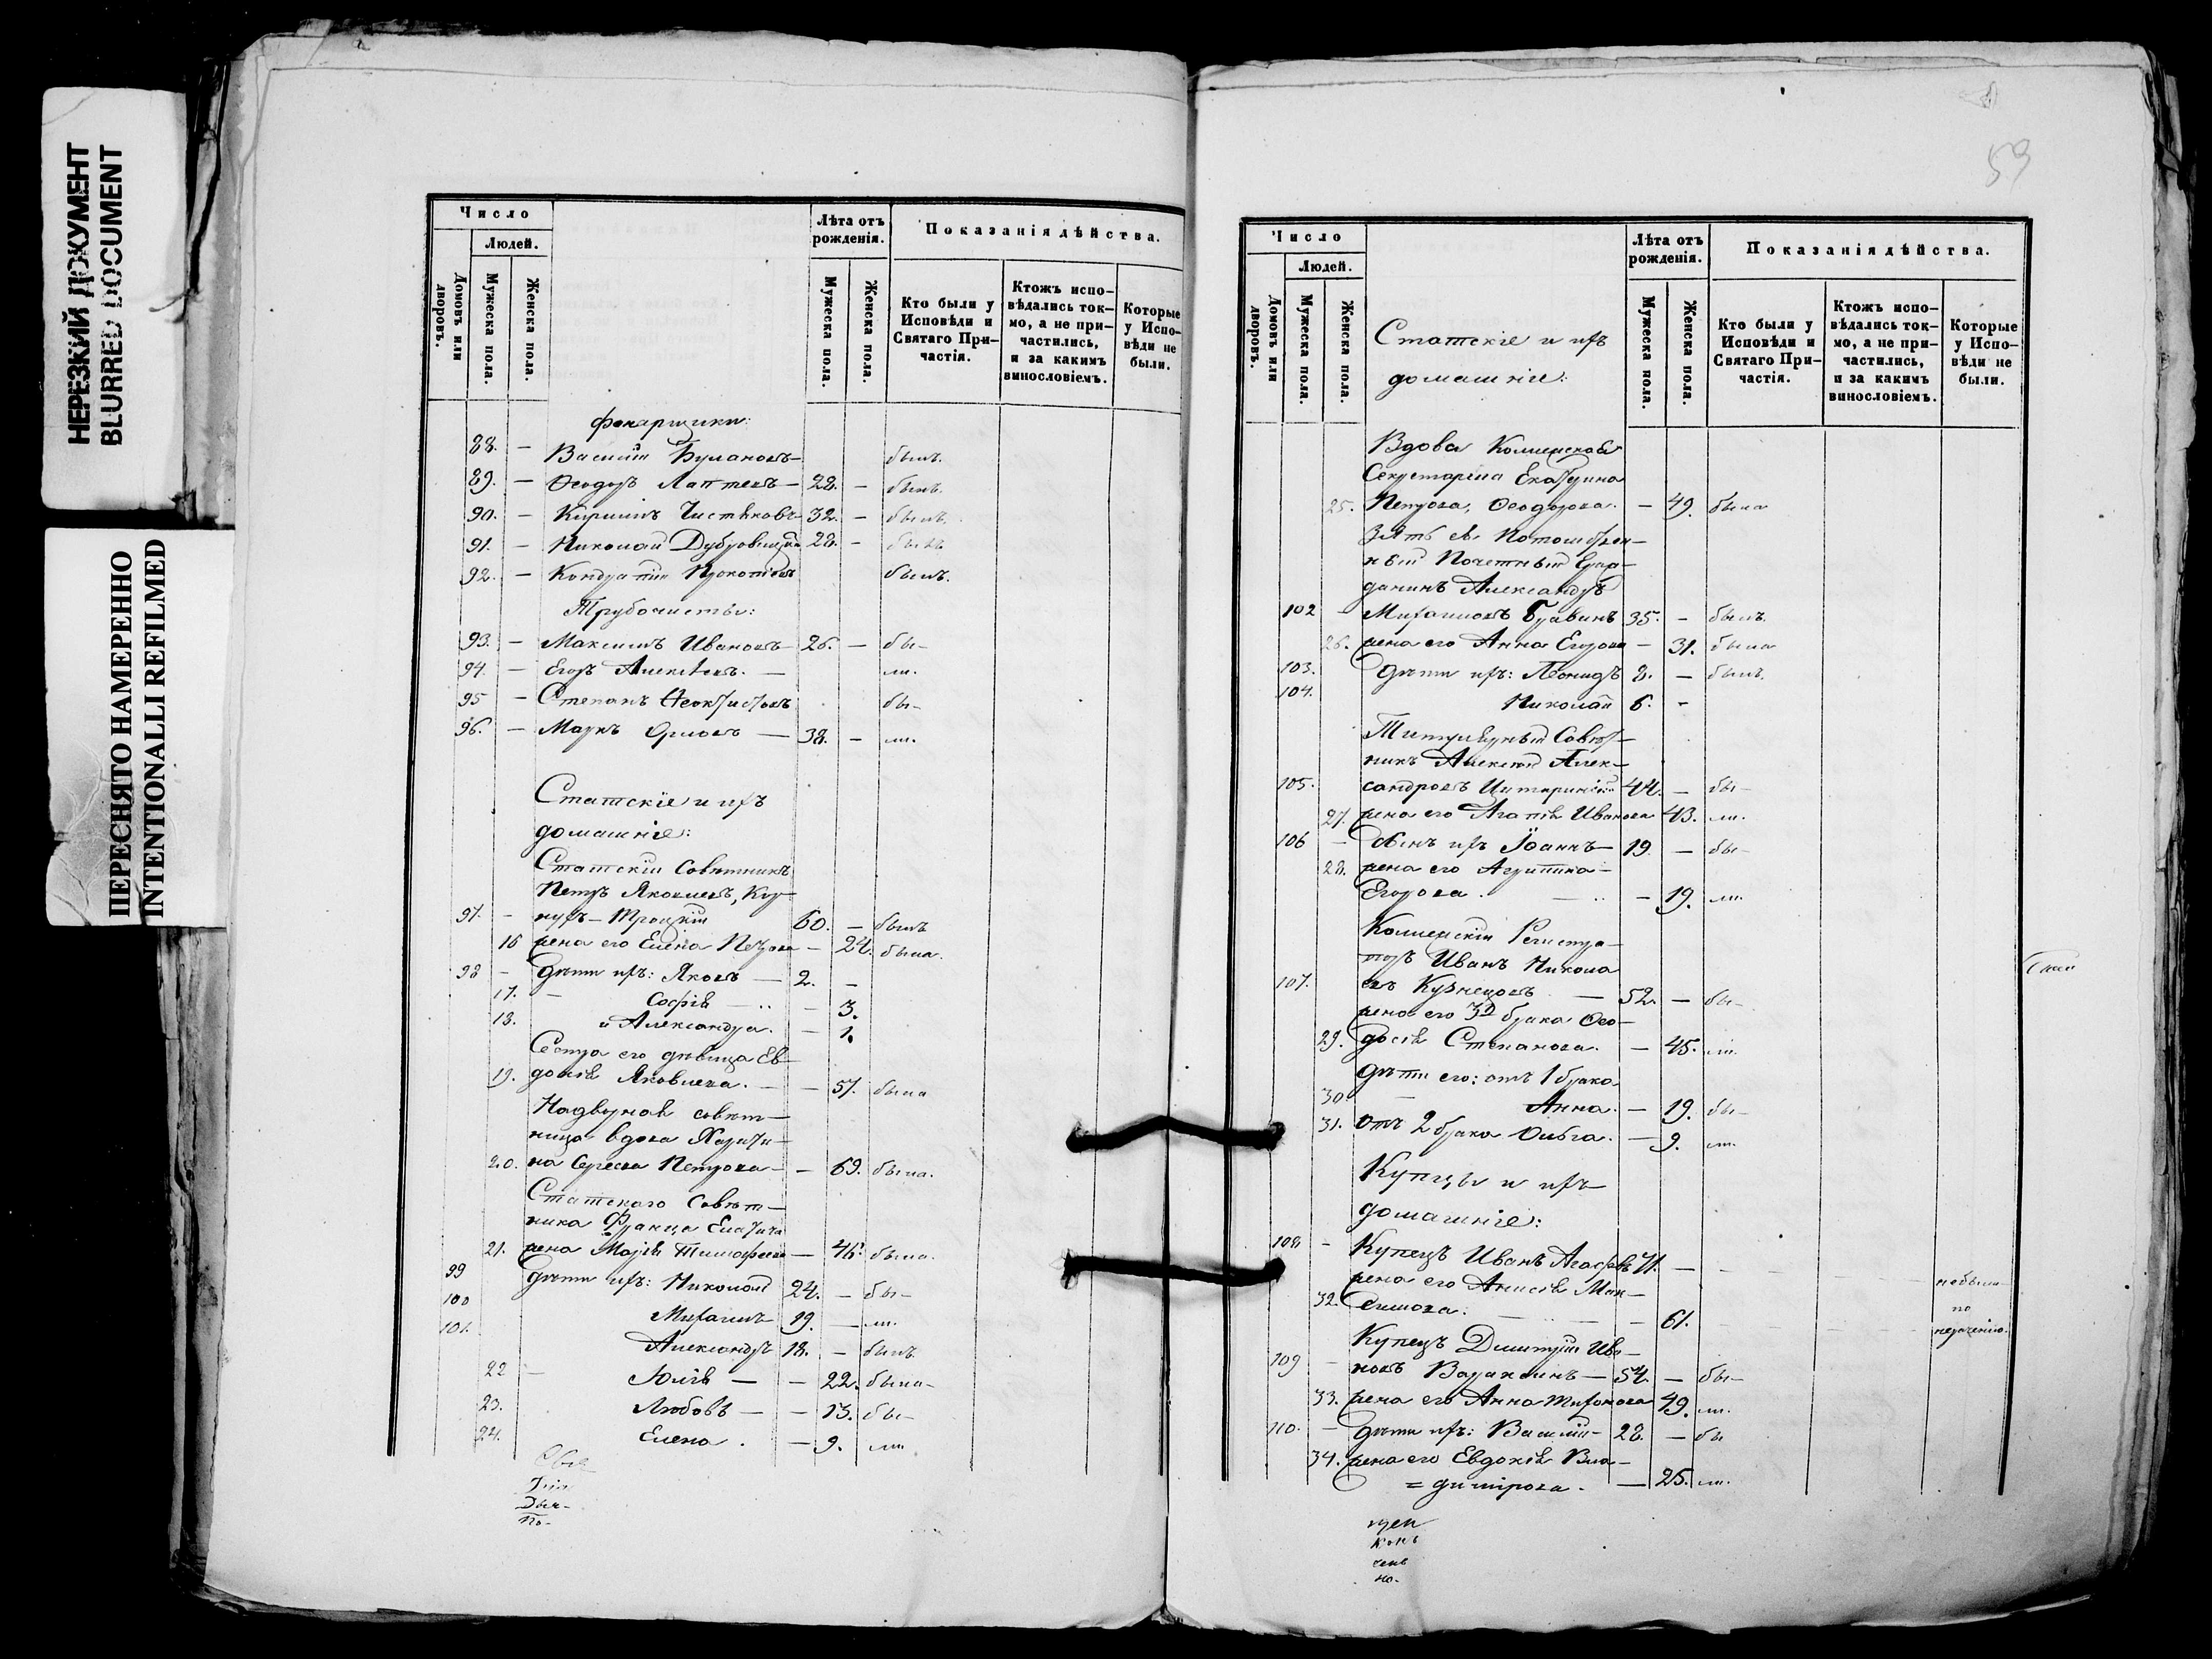 НЕРЕЗКИЙ ДОКУМЕНТ
BLURRED DOCUMENT
ПЕРЕСНЯТО НАМЕРЕННО
INTENTIONALLI REFILMED
Число
Людей.
Домовъ или дворовъ.
Мужеска пола.
Женска пола.
Лѣта отъ рожденія.
Мужеска пола.
Женска пола.
Показанія дѣйства.
Кто были у Исповѣди и Святаго Причастія.
Ктожъ исповѣдались токмо, а не причастились, и за какимъ винословіемъ.
Которые у Исповѣди не были.
фонарщики:
88. — Василій Булановъ — былъ.
89. — Ѳеодоръ Лаптевъ — 28. — былъ.
90. — Кириллъ Чистяковъ 32. — былъ.
91. — Николай 28. — былъ
92. — Кондратій Прокопіевъ былъ.
Трубочисты:
93. — Максимъ Ивановъ — 26. — бы-
94. — Егоръ Алексѣевъ. — ли.
95 — Степанъ Ѳеоктистовъ бы-
96. — Маркъ Орловъ — 38. — ли.
Статскіе и ихъ
домашніе:
Статскій Совѣтникъ
Петръ Яковлевъ,
97. - Троцкій 60. — былъ
16 жена его Елена Петрова — 24. была.
98 - дѣти ихъ: Яковъ — 2. —
17. — Софія — .. — 3.
18. и Александра. — 1.
Сестра его дѣвица Ев-
19. докія Яковлева. — — 57. была
Надворная совѣт-
ница вдова
20. Петрова — — 69. была.
Статскаго Совѣт-
ника Франца
21. жена Марія Тимофеева — 46. была.
99 дѣти ихъ: Николай 24. — бы-
100 Михаилъ 19. — ли.
101. Александръ 18. — былъ
22 — Юлія — — 22. была-
23. Любовь — — 13. бы-
24. Елена . — 9. ли
59
Число
Людей.
Домовъ или дворовъ.
Мужеска пола.
Женска пола.
Статскіе и ихъ
домашніе:
Лѣта отъ рожденія.
Мужеска пола.
Женска пола.
Показанія дѣйства.
Кто были у Исповѣди и Святаго Причастія.
Ктожъ исповѣдались токмо, а не причастились, и за какимъ винословіемъ.
Которые у Исповѣди не были.
Вдова Коллежская
Секретарша Екатерина
25. Петрова, Ѳеодорова. — 49. была
Зять ея Потомствен-
ный Почетный Граж-
данинъ Александръ
102 - Михаиловъ Бравинъ 35. — былъ.
26. жена его Анна Егорова — 31. была
103. дѣти ихъ: Леонидъ 8. — былъ.
104. Николай 6. -
Титулярный Совѣт-
никъ Алексѣй Алек-
105. сандровъ 44. — бы-
27. жена его Агапія Иванова 43. ли.
106 — сынъ ихъ Іоаннъ — 19. — бы-
28. жена его Агрипина
Егорова. — 19. ли.
Коллежскій Регистра-
торъ Иванъ Никола
107. евъ Кузнецовъ — 52. — бы-
жена его 3го брака Ѳео-
29. досія Степанова. — 45. ли.
дѣти его: отъ 1 брака
30. — Анна. — 19. бы-
31. отъ 2 брака Ольга. — 9. ли.
Купцы и ихъ
домашніе:
108 - Купецъ Иванъ 71. —
жена его Анисія Мак-
32. симова. — 61.
небыли
по
нерачению.
Купецъ Димитрій Ива-
109 - новъ Вараксинъ — 54. — бы-
33. жена его Анна 49. ли.
110. — дѣти ихъ: Василій — 28. — бы
34. жена его Евдокія Вла-
= димірова. — 25. ли.